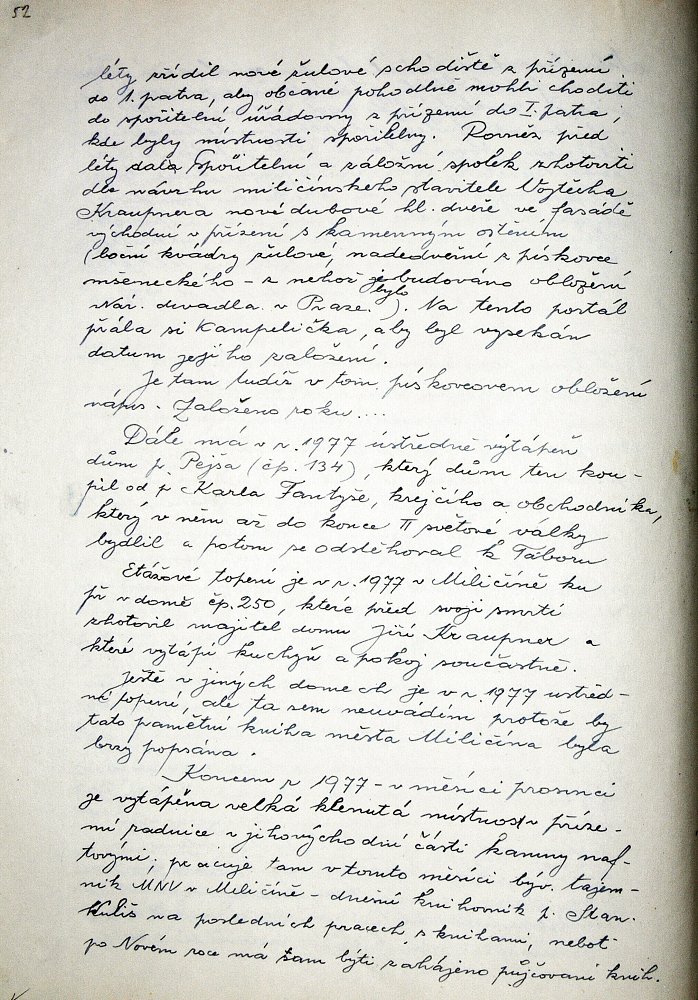 52
léty zřídil nové žulové schodiště z přízemí
do 1. patra, aby občané pohodlně mohli choditi
do spořitelní úřadovny z přízemí do I. patra,
kde byly místnosti spořitelny. Rovněž před
léty dala Spořitelní a záložní spolek zhotoviti
dle návrhu miličínského stavitele Vojtěcha
Kraupnera nové dubové hl. dveře ve fasádě
východní v přízemí s kamenným ostěním
(boční kvádry žulové, nadedveřní z pískovce
mšeneckého - z nehož je budováno obložení
bylo
Nár. divadla v Praze.). Na tento portál
přála si Kampelička, aby byl vysekán
datum jejího založení.
Je tam tudíž v tom pískovcovem obložení
nápis. Založeno roku....
Dále má v r. 1977 ústředně výtápěń
dům p. Pejša (čp. 134), který dům ten kou-
pil od p. Karla Fantyše, krejčího a obchodníka,
který v něm až do konce II světové války
bydlil a potom se odstěhoval k Táboru
Etážové topení je v r. 1977 v Miličíně ku
př v domě čp. 250, které před svojí smrtí
zhotovil majitel domu Jiří Kraupner a
které vytápí kuchyň a pokoj součastně.
Ještě v jiných domech je v r. 1977 ústřed-
ní topení, ale ta sem neuvádím protože by
tato pamětní kniha města Miličína byla
brzy popsána.
Koncem r 1977 - v měsíci prosinci
je vytápěna velká klenutá místnost v příze-
mí radnice v jihovýchodní části kamny naf-
tovými; pracuje tam v tomto měsíci býv. tajem-
ník MNV v Miličíně - dnešní knihovník p. Stan.
Kuliš na posledních pracech s knihami, neboť
po Novém roce má tam býti zahájeno půjčovaní knih.